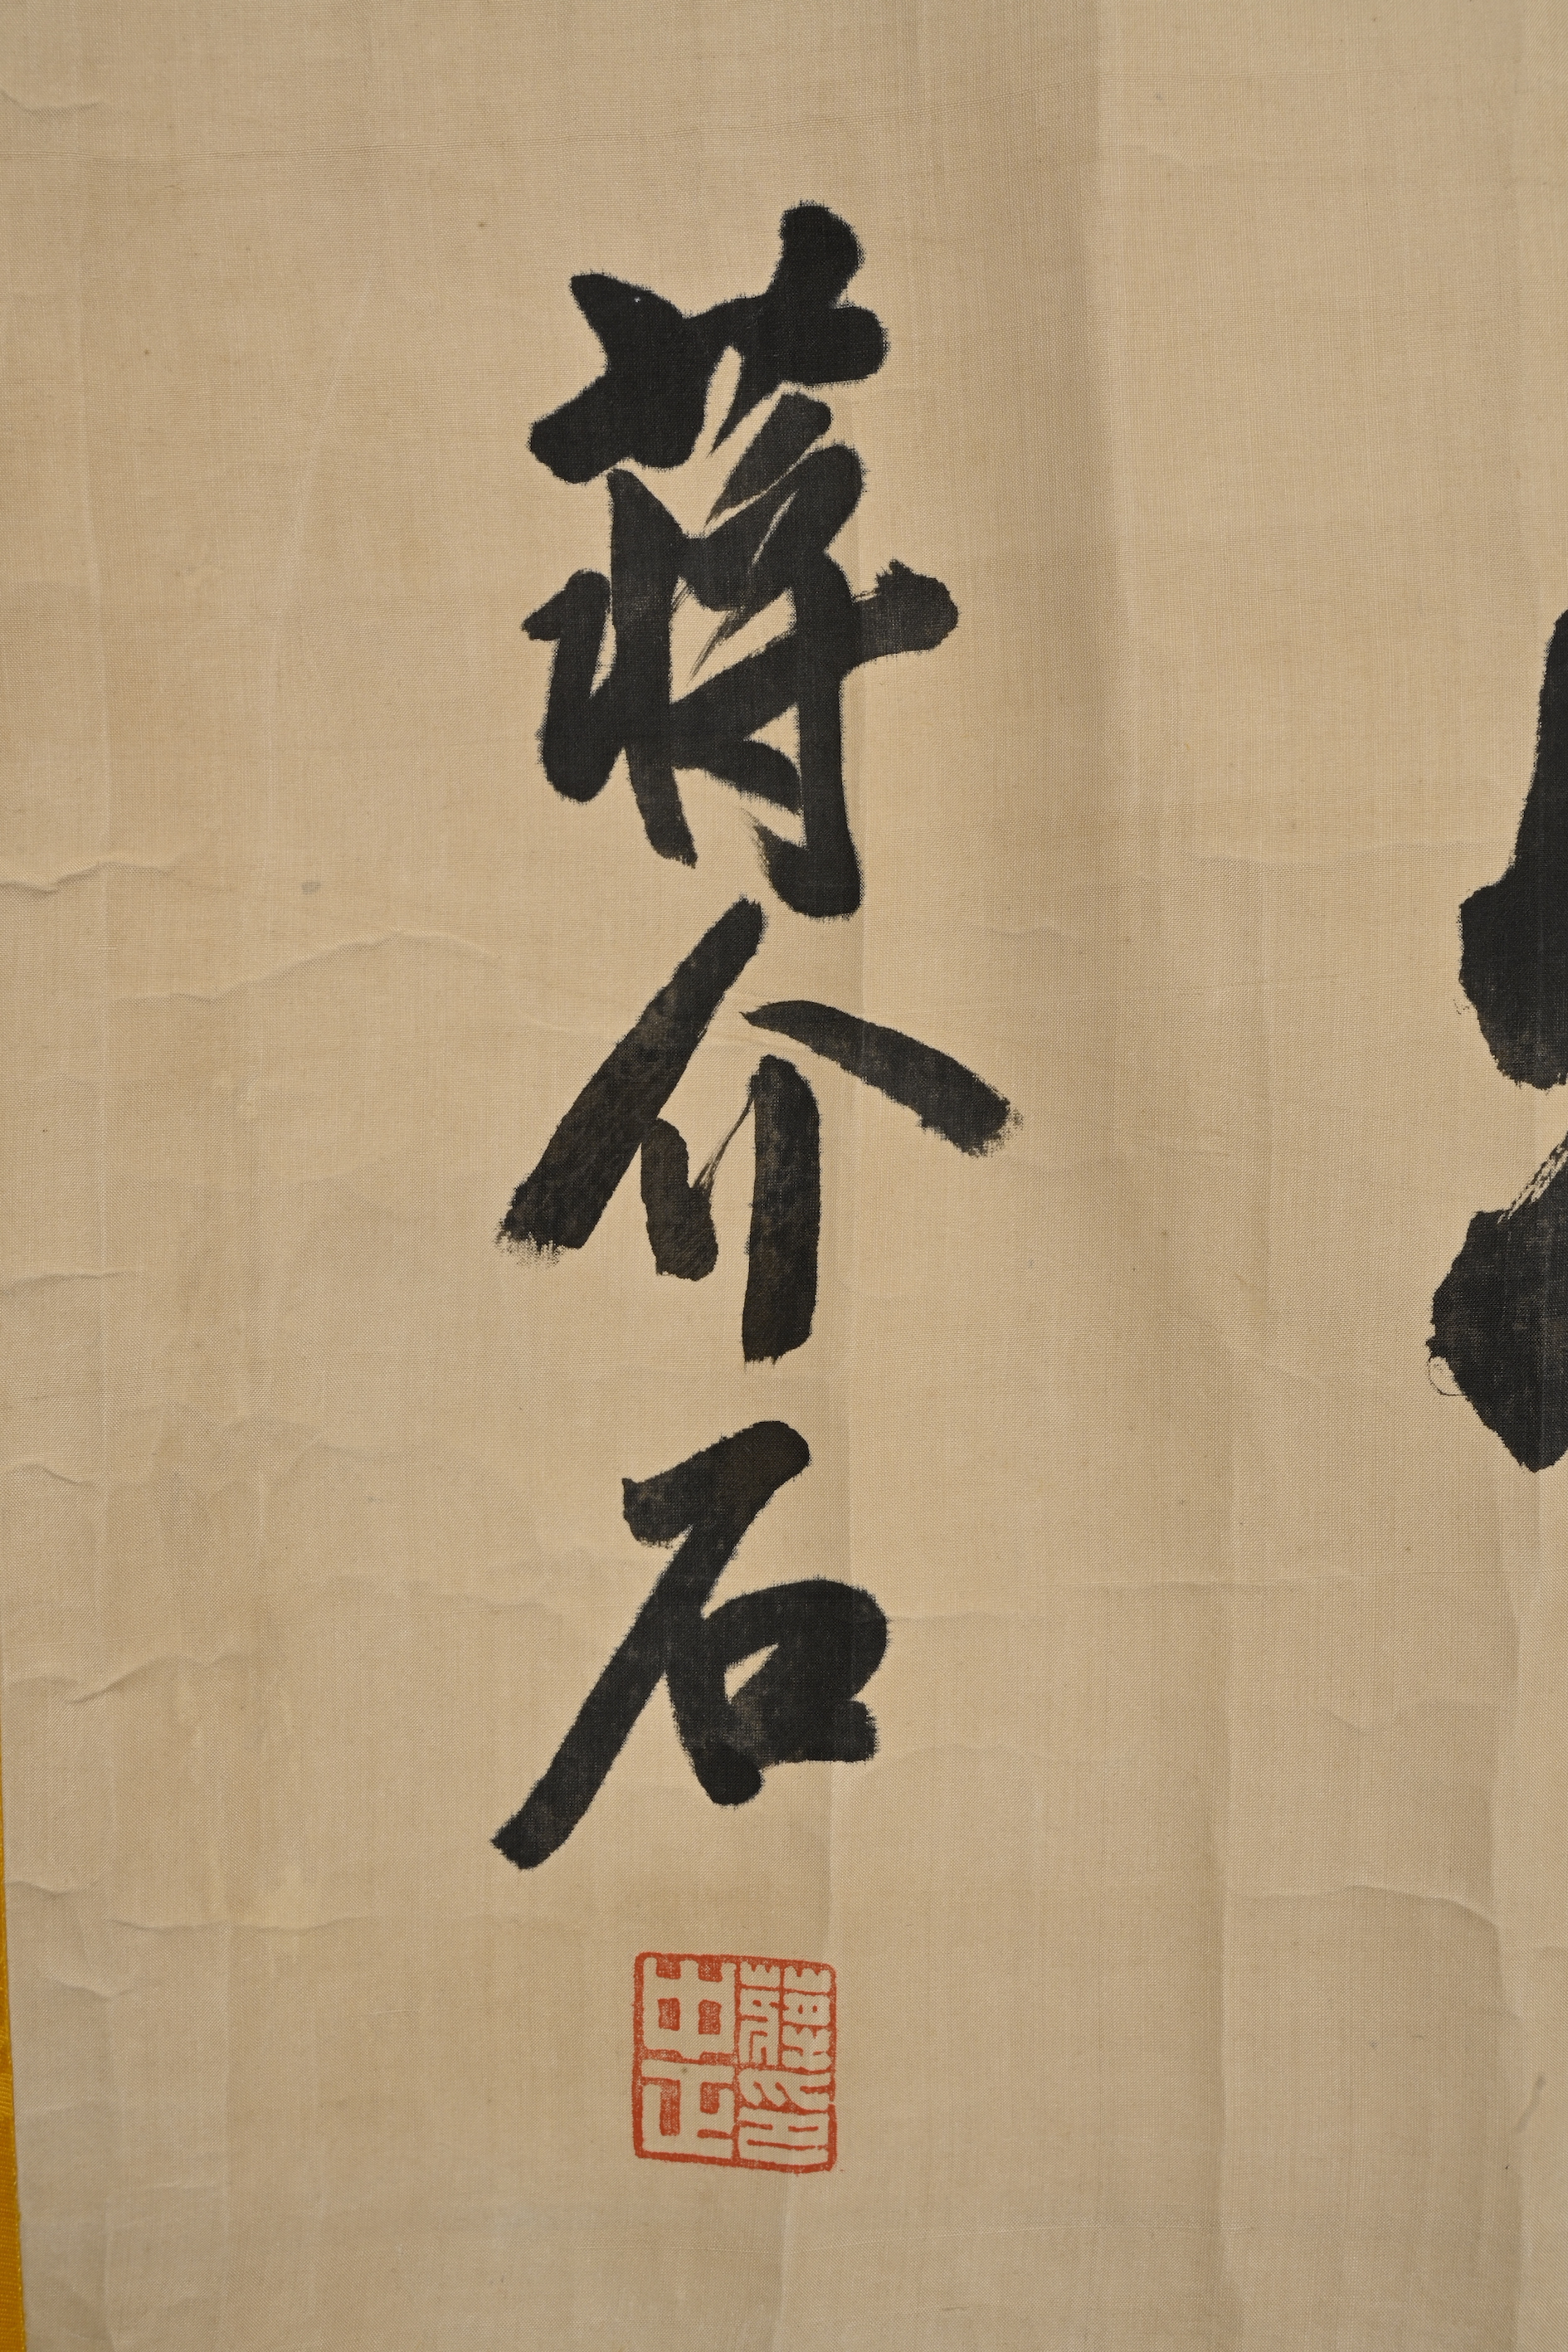 蔣介石
蔣中正